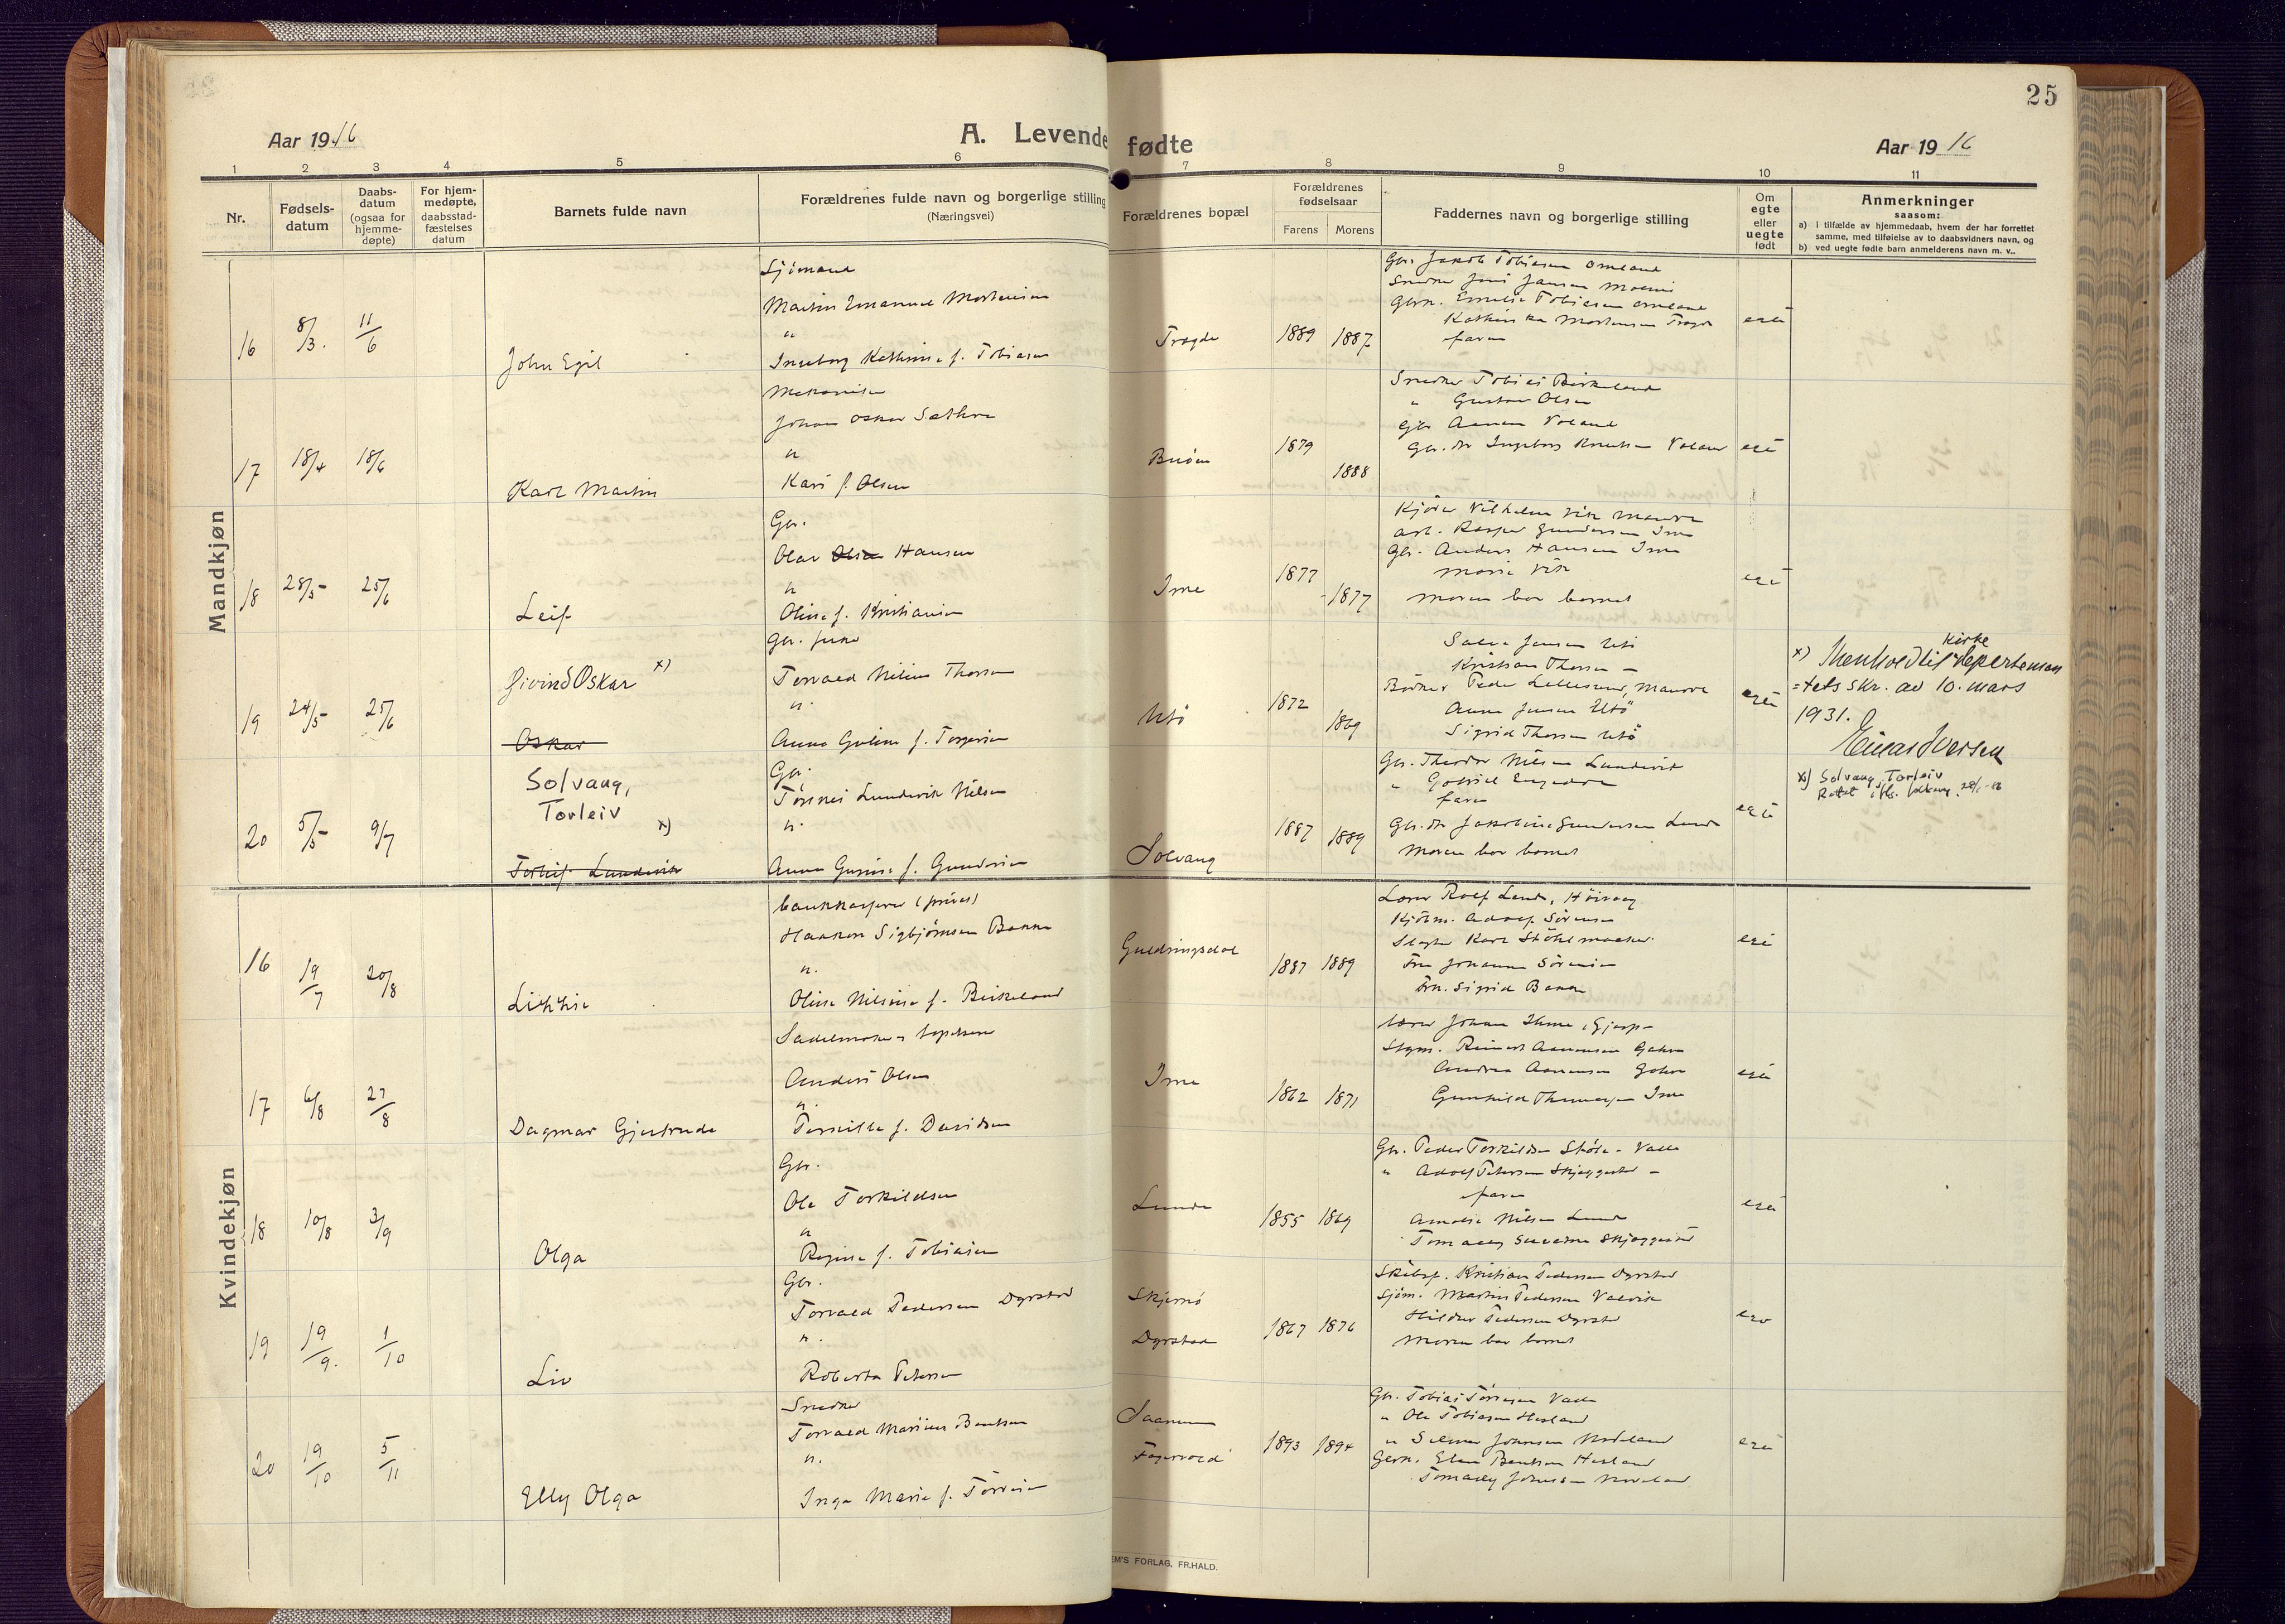 25
Aar 1916
A. Levende fødte
Aar 1916
1 2 3 4 5 6 7 8 9 10 11
Nr.
Fødsels-
datum
Daabs-
datum
(ogsaa for
hjemme-
døpte)
For hjem-
medøpte,
daabsstad-
fæstelses
datum
Barnets fulde navn
Forældrenes fulde navn og borgerlige stilling
(Næringsvei)
Forældrenes bopæl
Forældrenes
fødselsaar
Farens Morens
Faddernes navn og borgerlige stilling
Om
egte
eller
uegte
født
Anmerkninger
saasom:
a) i tilfælde av hjemmedaab, hvem der har forrettet
samme, med tilføielse av to daabsvidners navn, og
b) ved uegte fødte barn anmelderens navn m. v..
Mandkjøn
16 8/3. 11/6
John Egil
Sjömand
Martin Emanuel Mortensen
Ingeborg Kathrine f. Tobiasen
Tregde 1889 1887
Gbr. Jakob Tobiasen Omland
Gbrk. Emilie Tobiasen Omland
Kathinka Mortensen Tregde
faren
17 18/4 18/6
Karl Martin
Mekaniker
Johan Oskar Sæthre
Kari f. Olsen
Buöen 1879 1888
Snedker Tobias Birkeland
" Gustav Olsen
Gbr. Aanen Voland
Gbr. dtr Ingeborg Knutsen Voland
18 28/5 25/6
Leif
Gbr.
Olav Olsen Hansen
Oline f. Kristiansen
Ime 1877 1877
Kjörer Vilhelm Vik Mandal
arb. Kasper Gundersen Ime
Gbr. Anders Hansen Ime
Marie Vik
Moren bar barnet
19 24/5 25/6
Øivind Oskar x)
Oskar
Gbr. fisker
Torvald Nilius Thorsen
Anna Guline f. Torgersen
Utö 1872 1869
Salve Jensen Utö
Kristian Thorsen -
Bödker Peder Lillesund, Mandal
Anna Jensen Utö
Sigrid Thorsen Utö
x) Henhold til Kirkedepartemen
=tets skr. av 10. mars
1931.
Einar Iversen
20 5/5 9/7
Solvang,
Torleiv x)
Torleif Lundevik
Gbr.
Tönnes Lundevik Nilsen
Anna Gurine f. Gundersen
Solvang 1887 1889
Gbr. Theodor Nilsen Lundevik
faren
Gbr. dtr Jakobine Gundersen Lunde
Moren bar barnet
x) Solvang, Torleiv
Kvindekjøn
16 19/7 20/8
bankkasserer (privat)
Haakon Sigbjörnsen Bakke
Oline Nilsine f. Birkeland
1887 1889
Lærer Rolf Lunde, Höivaag
Kjöbm. Adolf Sörensen
Fru Johanne Sörensen
Frk. Sigrid Bakke
17 6/8 27/8
Dagmar Gjertrude
Sadelmaker & tapetserer
Anders Olsen
Torkille f. Davidsen
Ime 1862 1871
Lærer Johan Ihme, Gjerp-
Andrea Aanensen
18 10/8 3/9
Olga
Gbr.
Ole Torkildsen
Regine f. Tobiasen
Lunde 1855 1869
Gbr. Peder Torkildsen Stöle - Valle
" Adolf Petersen Skjeggestad -
faren
Amalie Nilsen Lunde
19 19/9. 1/10
Liv
Gbr.
Torvald Pedersen Dyrstad
Roberta Petersen
Skjernö
Dyrstad 1867 1876
Skibsf. Kristian Pedersen Dyrstad
Sjöm. Martin Pedersen Valvik
Hildur Pedersen Dyrstad
Moren bar barnet
20 19/10 5/11
Elly Olga
Snedker
Torvald Marius Bentsen
Inga Marie f. Törresen
Saanum
Fagervold 1893 1894
Gbr. Tobias Törresen Valle
" Ole Tobiasen Hesland
" Selmer Johnsen Nodeland
Gbrk. Elen Bentsen Hesland
EM'S FORLAG, FR.HALD.